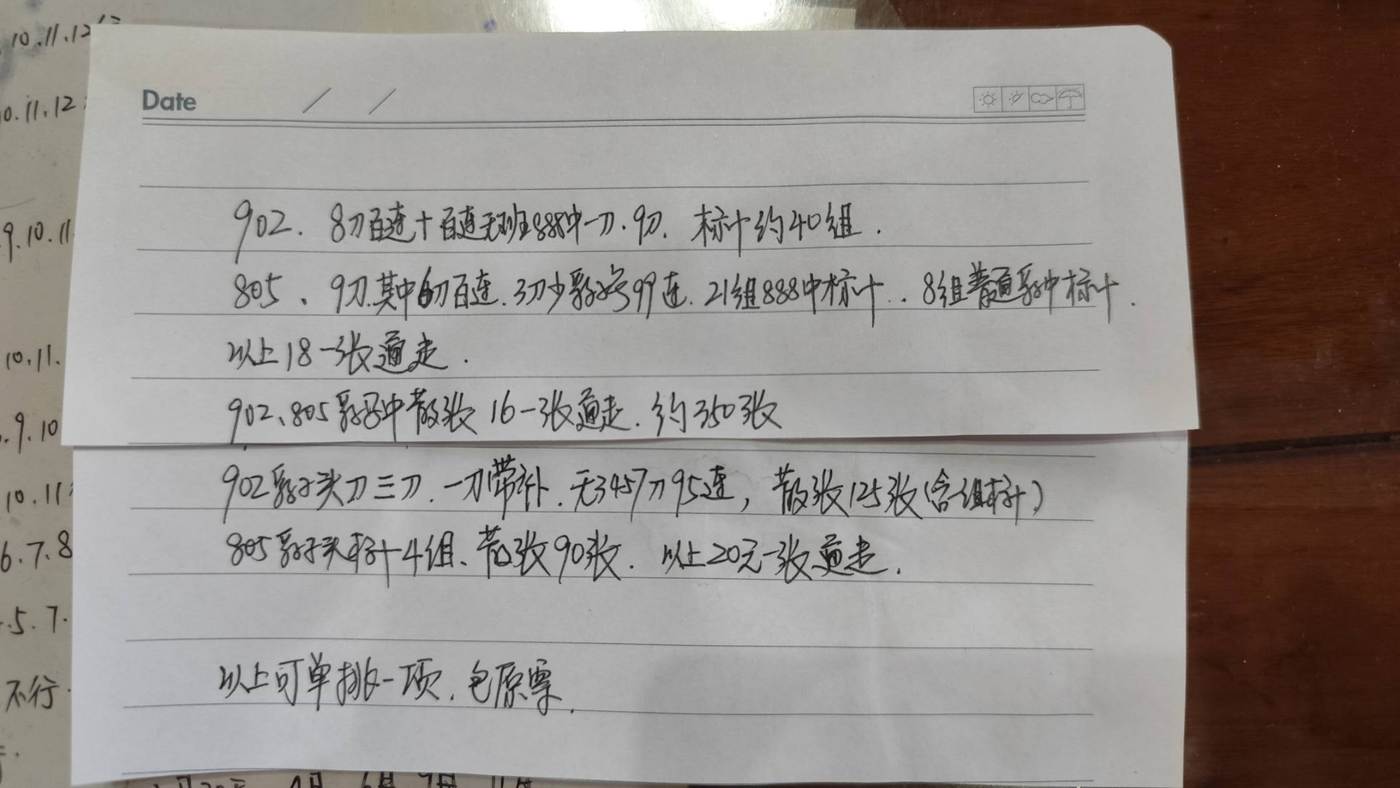 10.11.12
0.11.12
9.10.11
10.11.
.9.10
10.11
6.7.8
.5.7.
不行
Date / /
902. 8刀百连+百连无班888中一刀.9刀. 标十约40组.
805、9刀.其中6刀百连.3刀少豹子号99连.21组888中标十..8组普通豹中标十.
以上18一张通走.
902、805豹子中散张16一张通走.约350张
902豹子头刀三刀.一刀带补.无3457刀95连,散张125张(含组标十)
805豹子头标十4组、散张90张.以上20元一张通走.
以上可单挑一项.包原票.